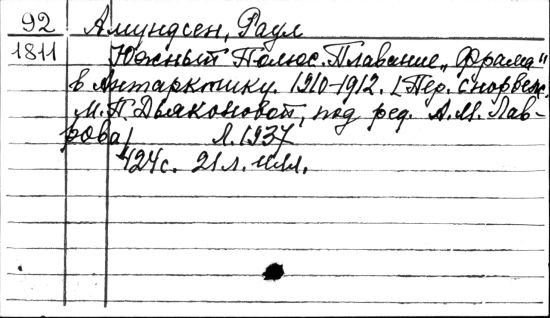 92 Амундсен, Раул
1811 Южный Полюс. Плавание „Фрама"
в Антарктику. 1910-1912. [Пер. с норвеж.
М.П. Дьяконовой, под ред. А.М. Лав-
рова] Л. 1937
424с. 21 л. илл.